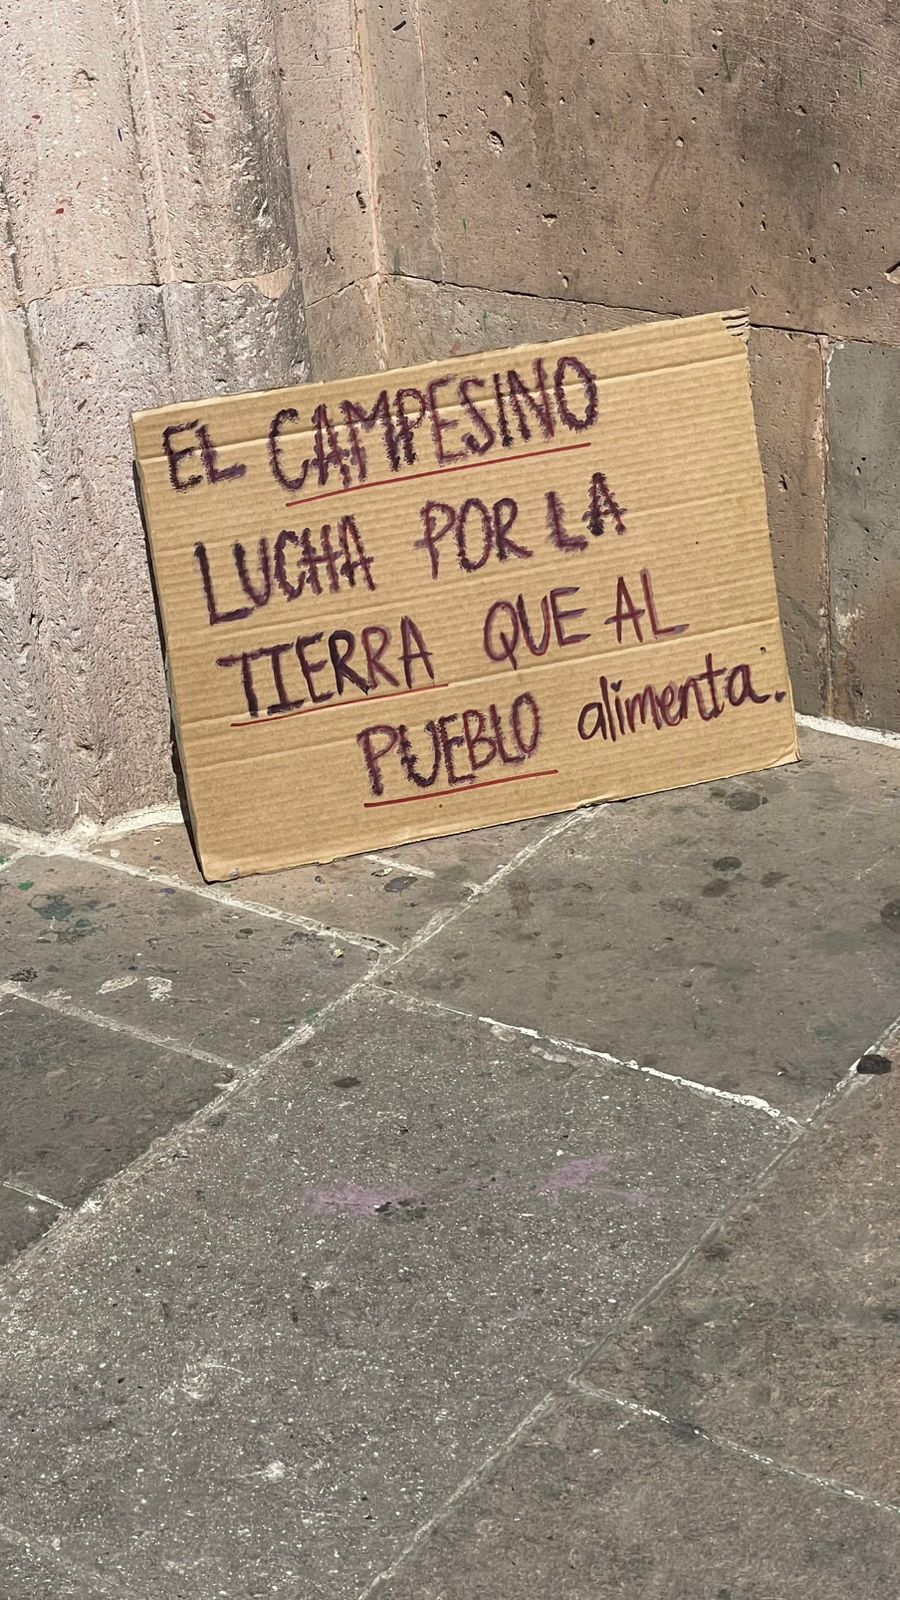 EL CAMPESINO
LUCHA POR LA
TIERRA QUE AL
PUEBLO alimenta.